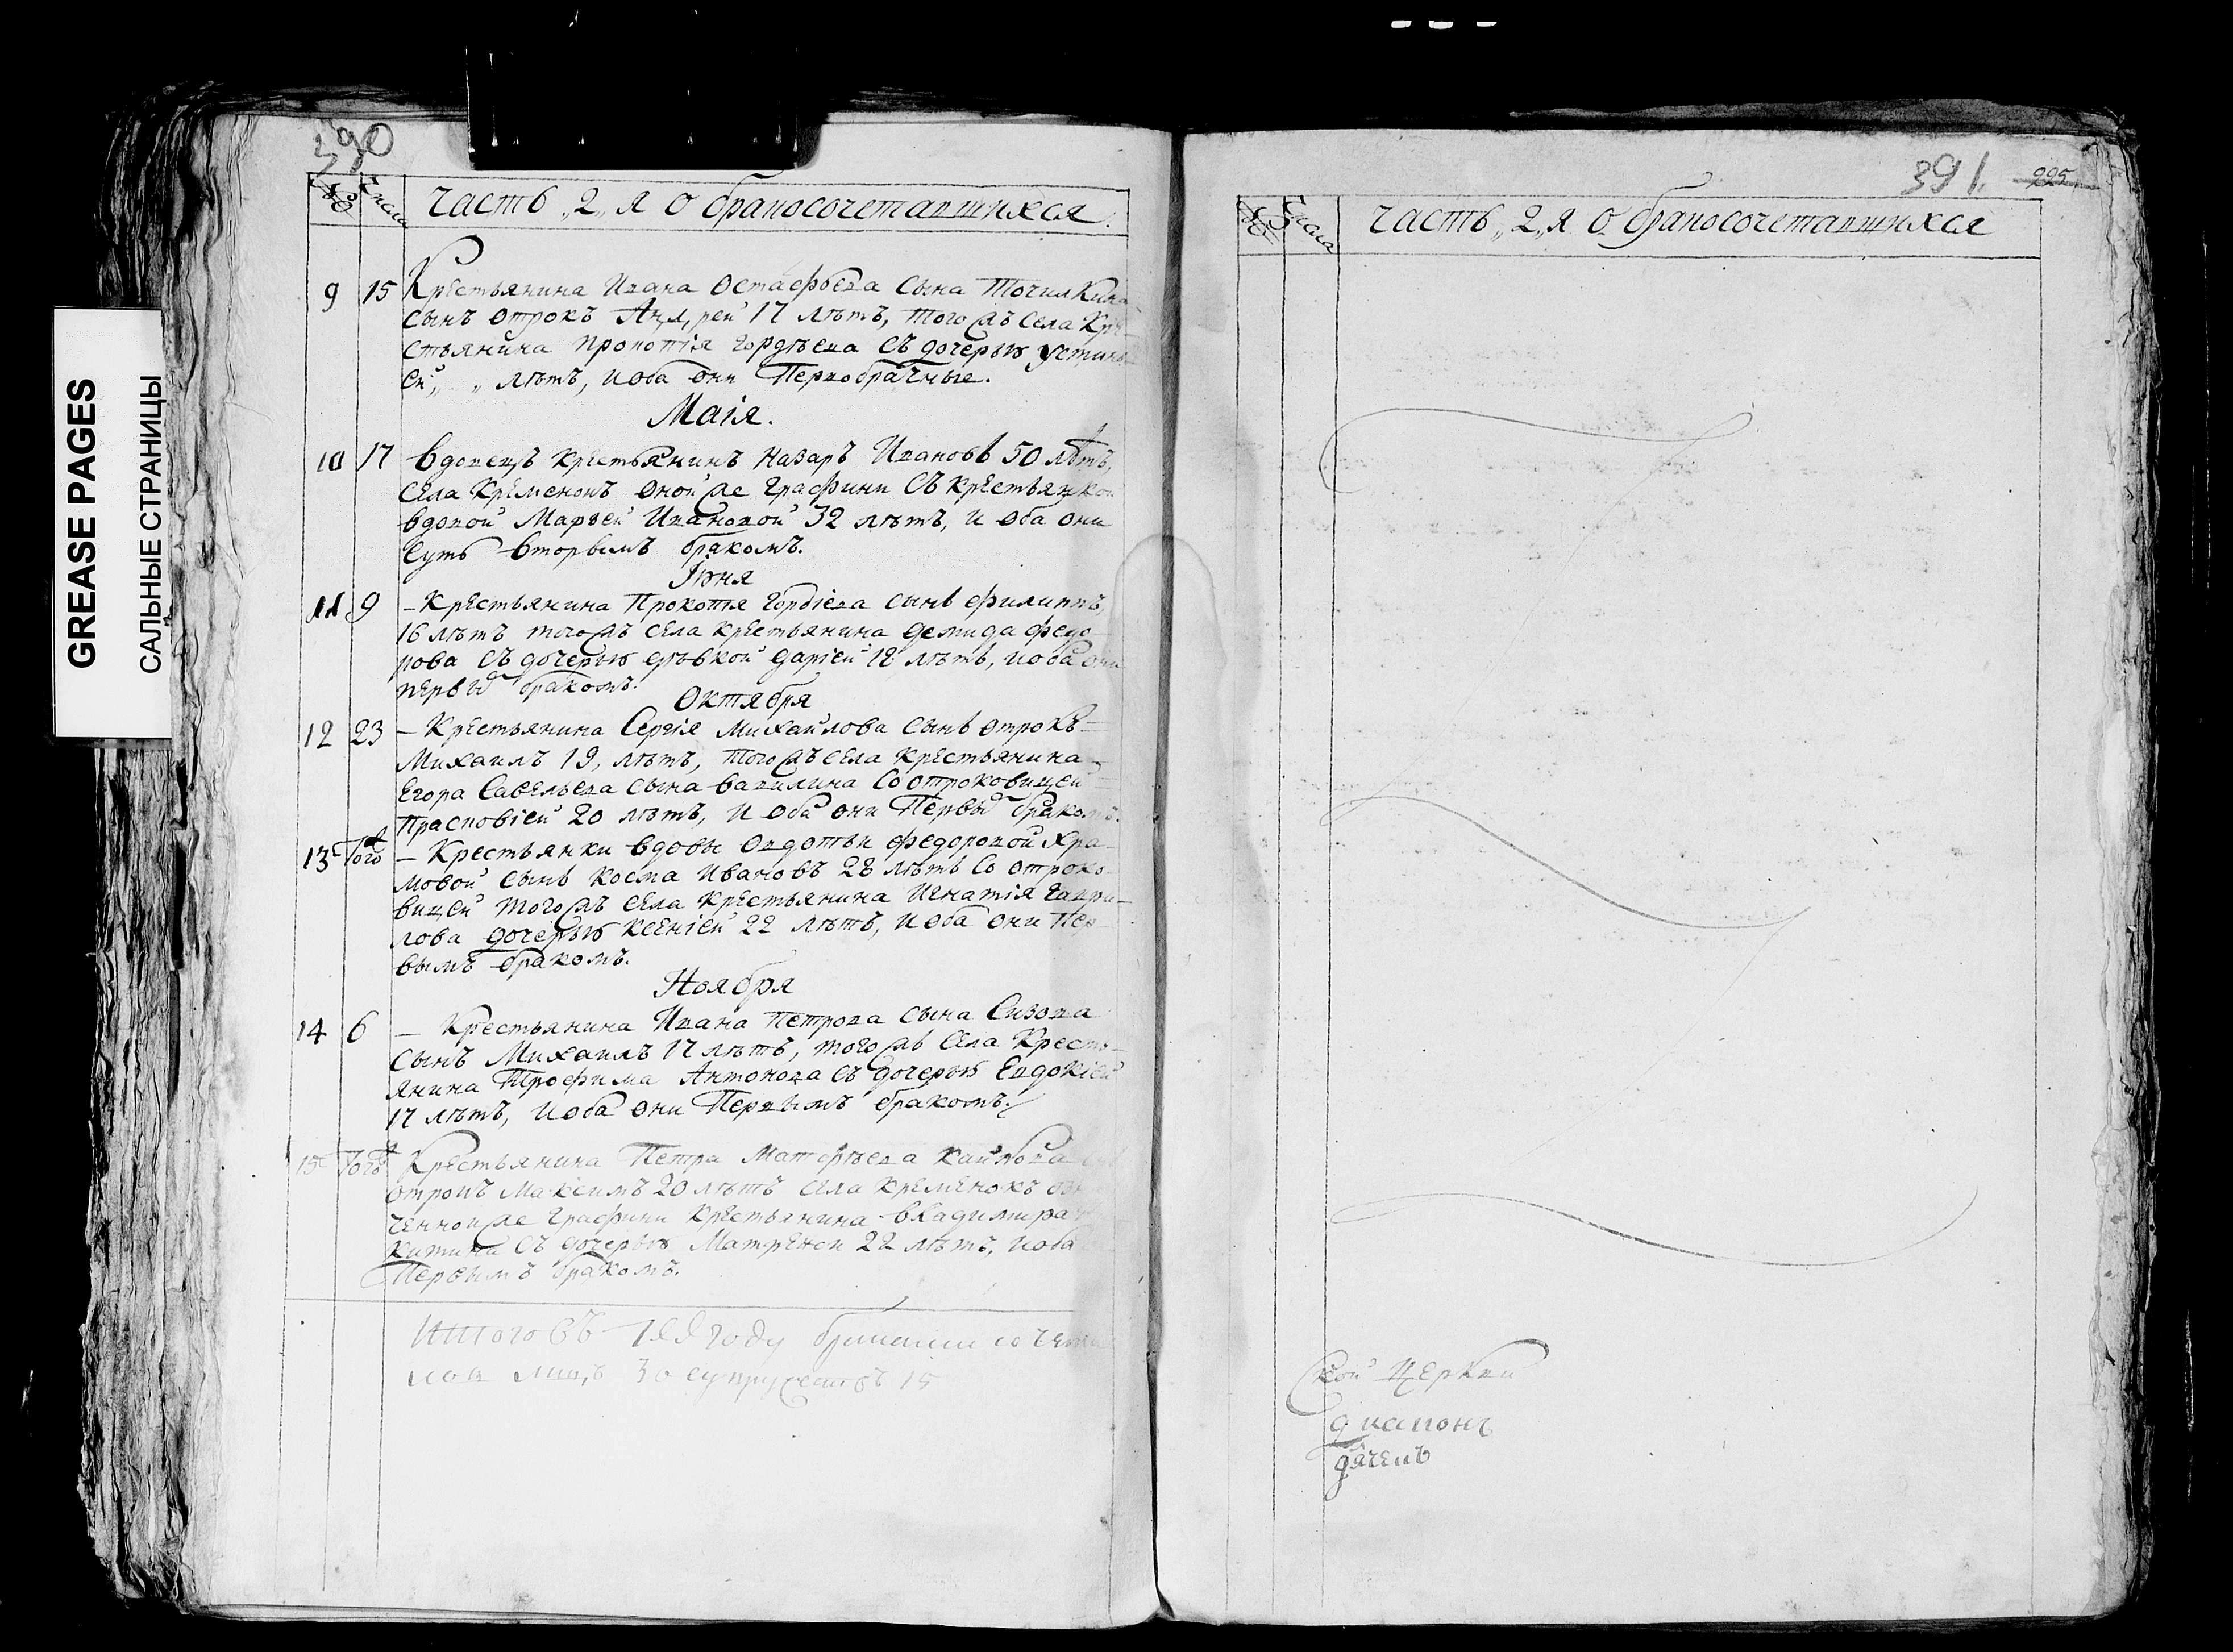 GREASE PAGES
САЛЬНЫЕ СТРАНИЦЫ
390
№ Числа Часть „2„ я о бракосочетавшихся.
9 15 Крестьянина Ивана Остафьева сына Точилкина
сынъ отрокъ Андрей 17 лѣтъ, того жъ села Кре-
стьянина Прокопія Гордѣева съ дочерью Устинь
ей „ „ лѣтъ, и оба они Первобрачные.
Маія.
10 17 Вдовецъ крестьянинъ Назаръ Ивановъ 50 лѣтъ,
села Кременокъ оной же Графини съ крестьянкой
вдовой Марѳей Ивановой 32 лѣтъ, и оба они
суть вторымъ бракомъ.
Іюня
11 9 – Крестьянина Прокопія Гордіева сынъ Филиппъ,
16 лѣтъ того жъ села крестьянина Демида Федо
рова съ дочерью дѣвкой Даріей 18 лѣтъ, и оба они
первым бракомъ.
Октября
12 23 – Крестьянина Сергія Михайлова сынъ отрокъ –
Михаилъ 19, лѣтъ, того жъ села крестьянина
Егора Савельева сына Вавилина со отроковицей
Прасковіей 20 лѣтъ, и оба они Первым бракомъ.
13 Того ж – Крестьянки вдовы Овдотьи Федоровой Хра-
мовой сынъ Косма Ивановъ 28 лѣтъ со отроко-
вицей того жъ села крестьянина Игнатія Гаври-
лова дочерью Ксеніей 22 лѣтъ, и оба они пер-
вымъ бракомъ.
Ноября
14 6 – Крестьянина Ивана Петрова сына Сизова
сынъ Михаилъ 17 лѣтъ, того жъ села Кресть-
янина Трофима Антонова съ дочерью Евдокіей
17 лѣтъ, и оба они Первымъ бракомъ.
15 Того ж Крестьянина Петра Матфѣева
отрокъ Максимъ 20 лѣтъ села Кременокъ
ченной же Графини крестьянина Владимира
китина съ дочерью Матреной 22 лѣтъ, и оба
Первымъ бракомъ.
Итого въ году бракомъ сочетав
лицъ 30 супружествъ 15
391. 225
№ Числа Часть „2„ я о бракосочетавшихся
ской Церкви
диаконъ
дячекъ